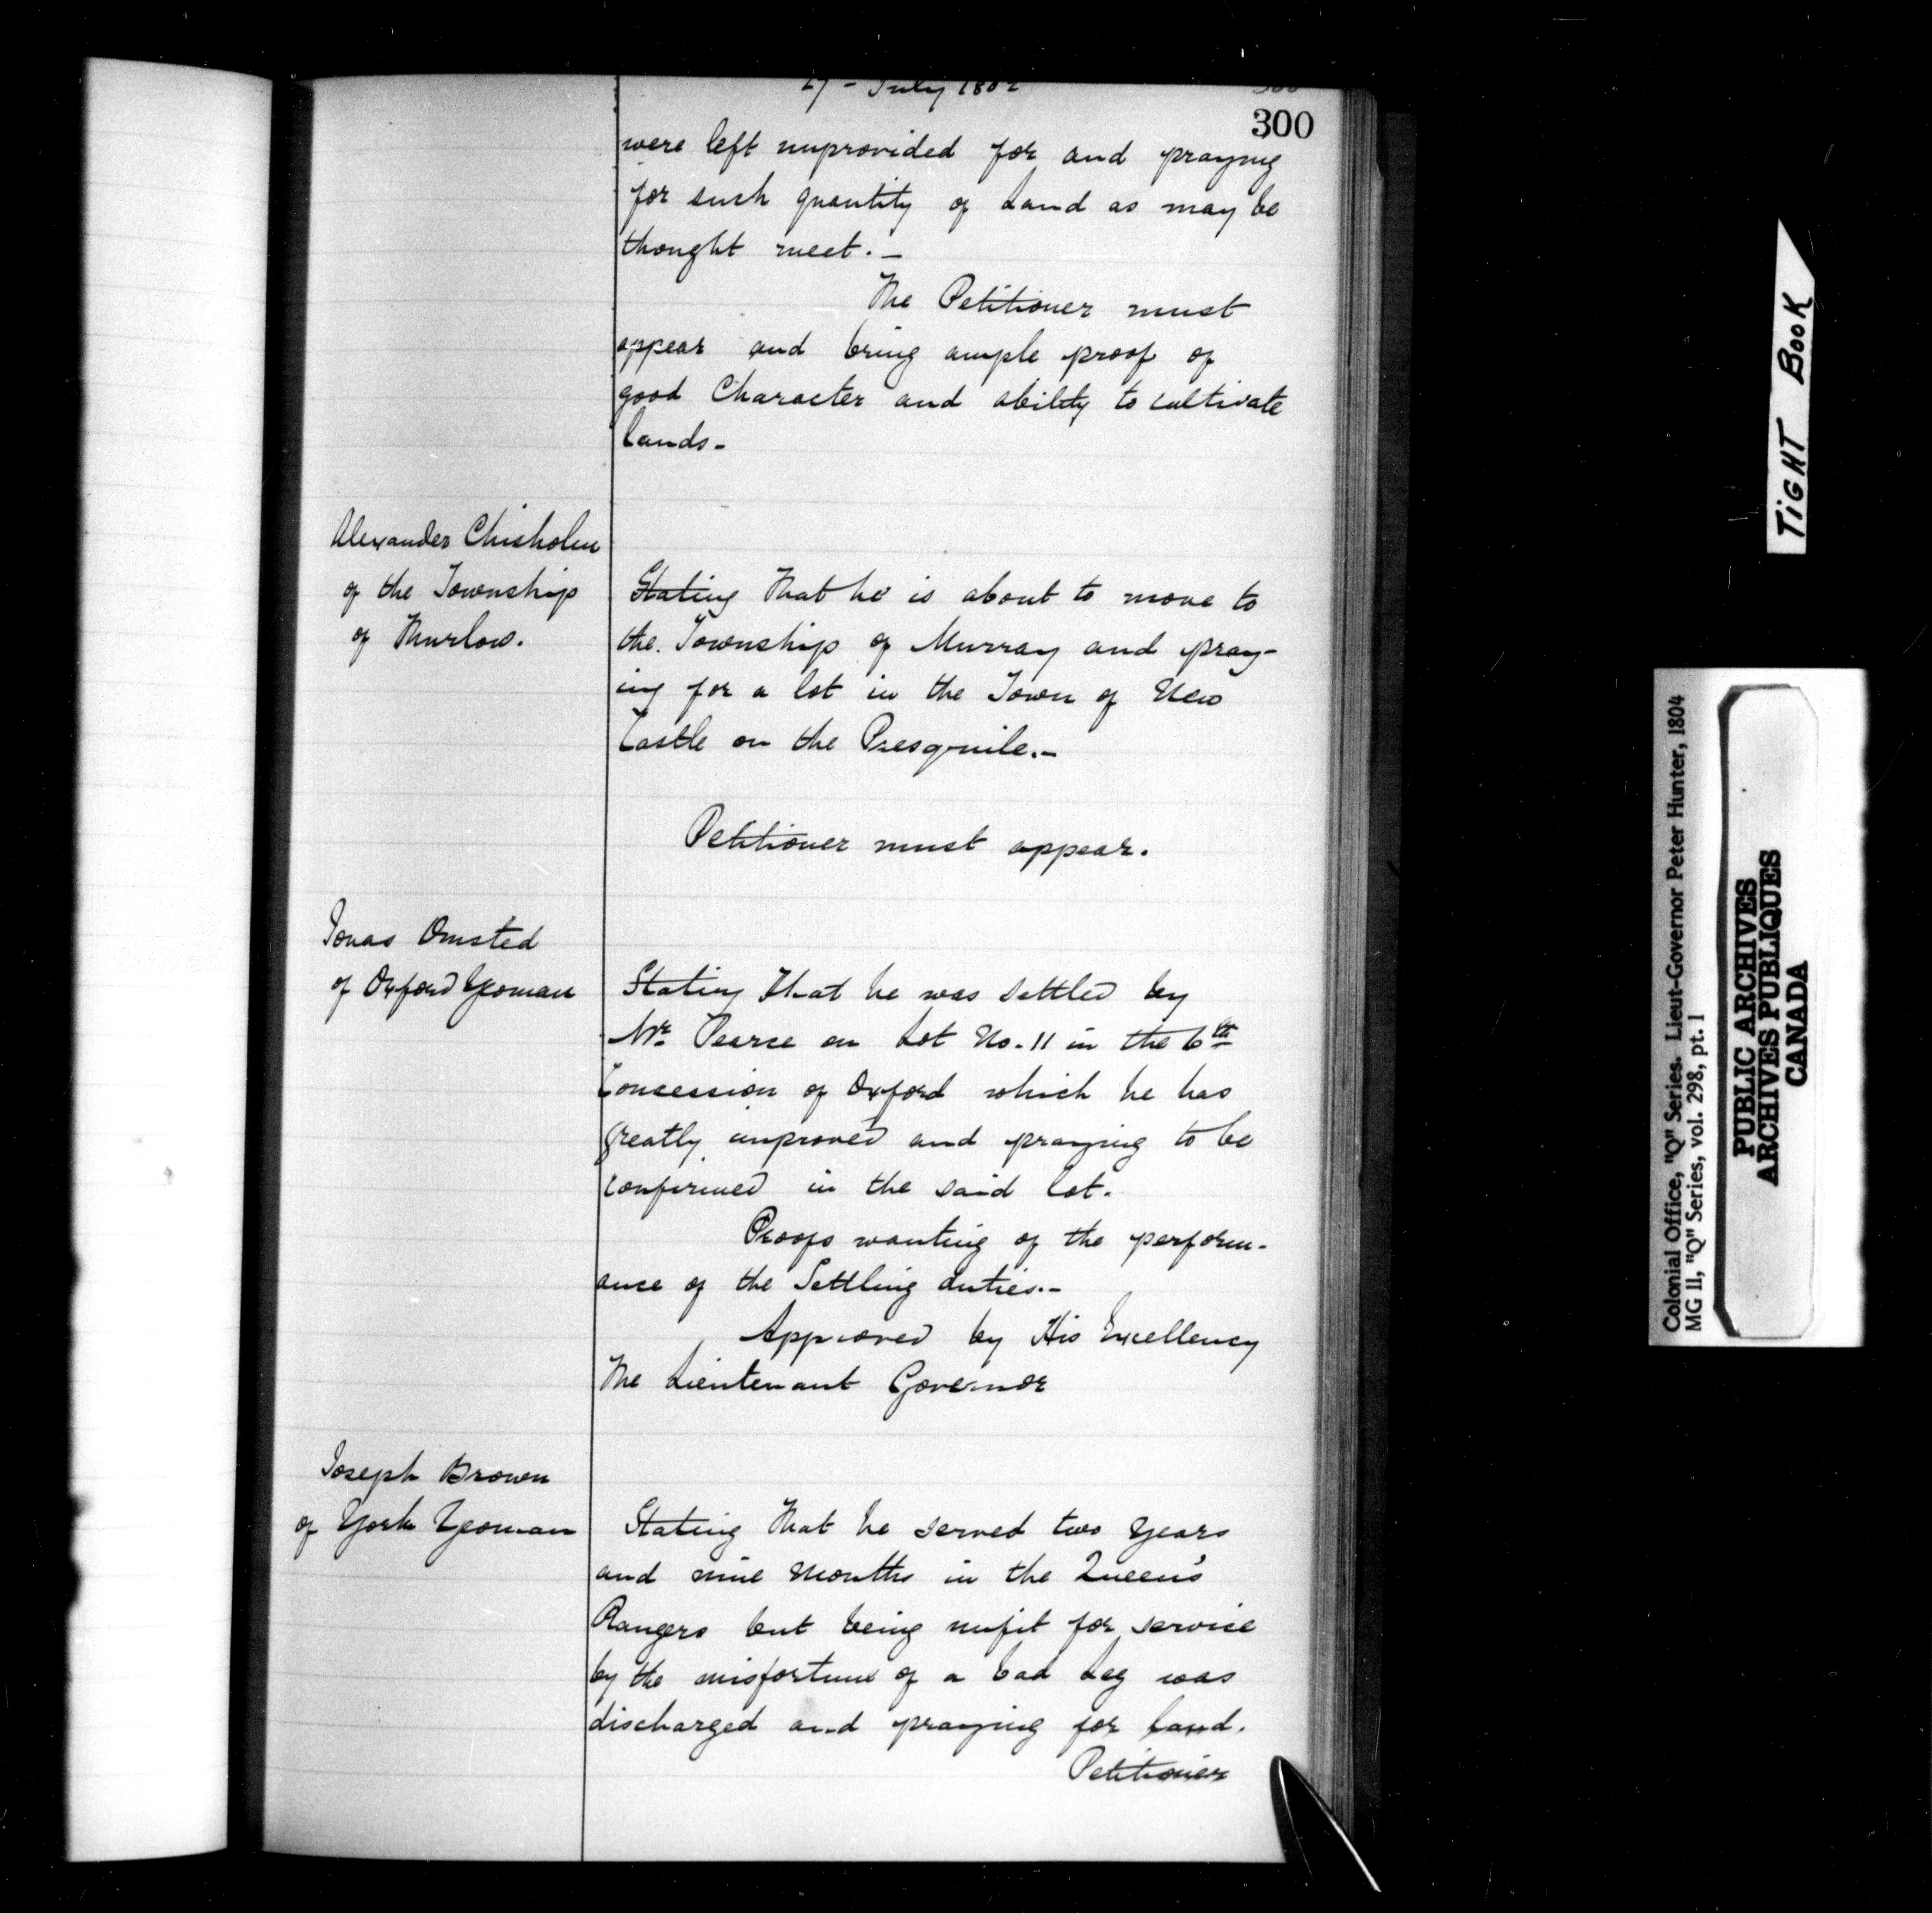 27 - July 1802
300
were left unprovided for and praying
for such quantity of Land as may be
thought meet. -
The Petitioner must
appear and bring ample proof of
good Character and ability to cultivate
lands -
Alexander Chisholm
of the Township
of Thurlow.
Stating That he is about to move to
the Township of Murray and pray-
ing for a lot in the Town of New
Castle on the Presquile. -
Petitioner must appear.
Jonas Omsted
of Oxford Yeoman
Stating That he was settled by
Mr. Pearce on Lot No. 11 in the 6th
Concession of Oxford which he has
greatly improved and praying to be
confirmed in the said lot.
Proofs wanting of the perform-
ance of the Settling duties. -
Approved by His Excellency
The Lieutenant Governor
Joseph Brown
of York Yeoman
Stating That he served two Years
and nine Months in the Queen's
Rangers but being unfit for service
by the misfortune of a bad Leg was
discharged and praying for land.
Petitioner
TIGHT BOOK
Colonial Office, "Q" Series. Lieut-Governor Peter Hunter, 1804
MG 11, "Q" Series, vol. 298, pt. 1
PUBLIC ARCHIVES
ARCHIVES PUBLIQUES
CANADA